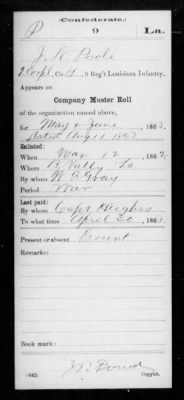 (Confederate.)
P 9 La.
J. N. Poole
2 Corpl, Co. 9 Reg't Louisiana Infantry.
Appears on
Company Muster Roll
of the organization named above,
for May & June, 1863.
Dated Aug 11, 1863
Enlisted:
When Mar 17, 1862
Where La
By whom W. E. Gray
Period War
Last paid:
By whom Capt Hughes
To what time April 30, 1863.
Present or absent Present
Remarks:
Book mark:
(642)
Copyist.